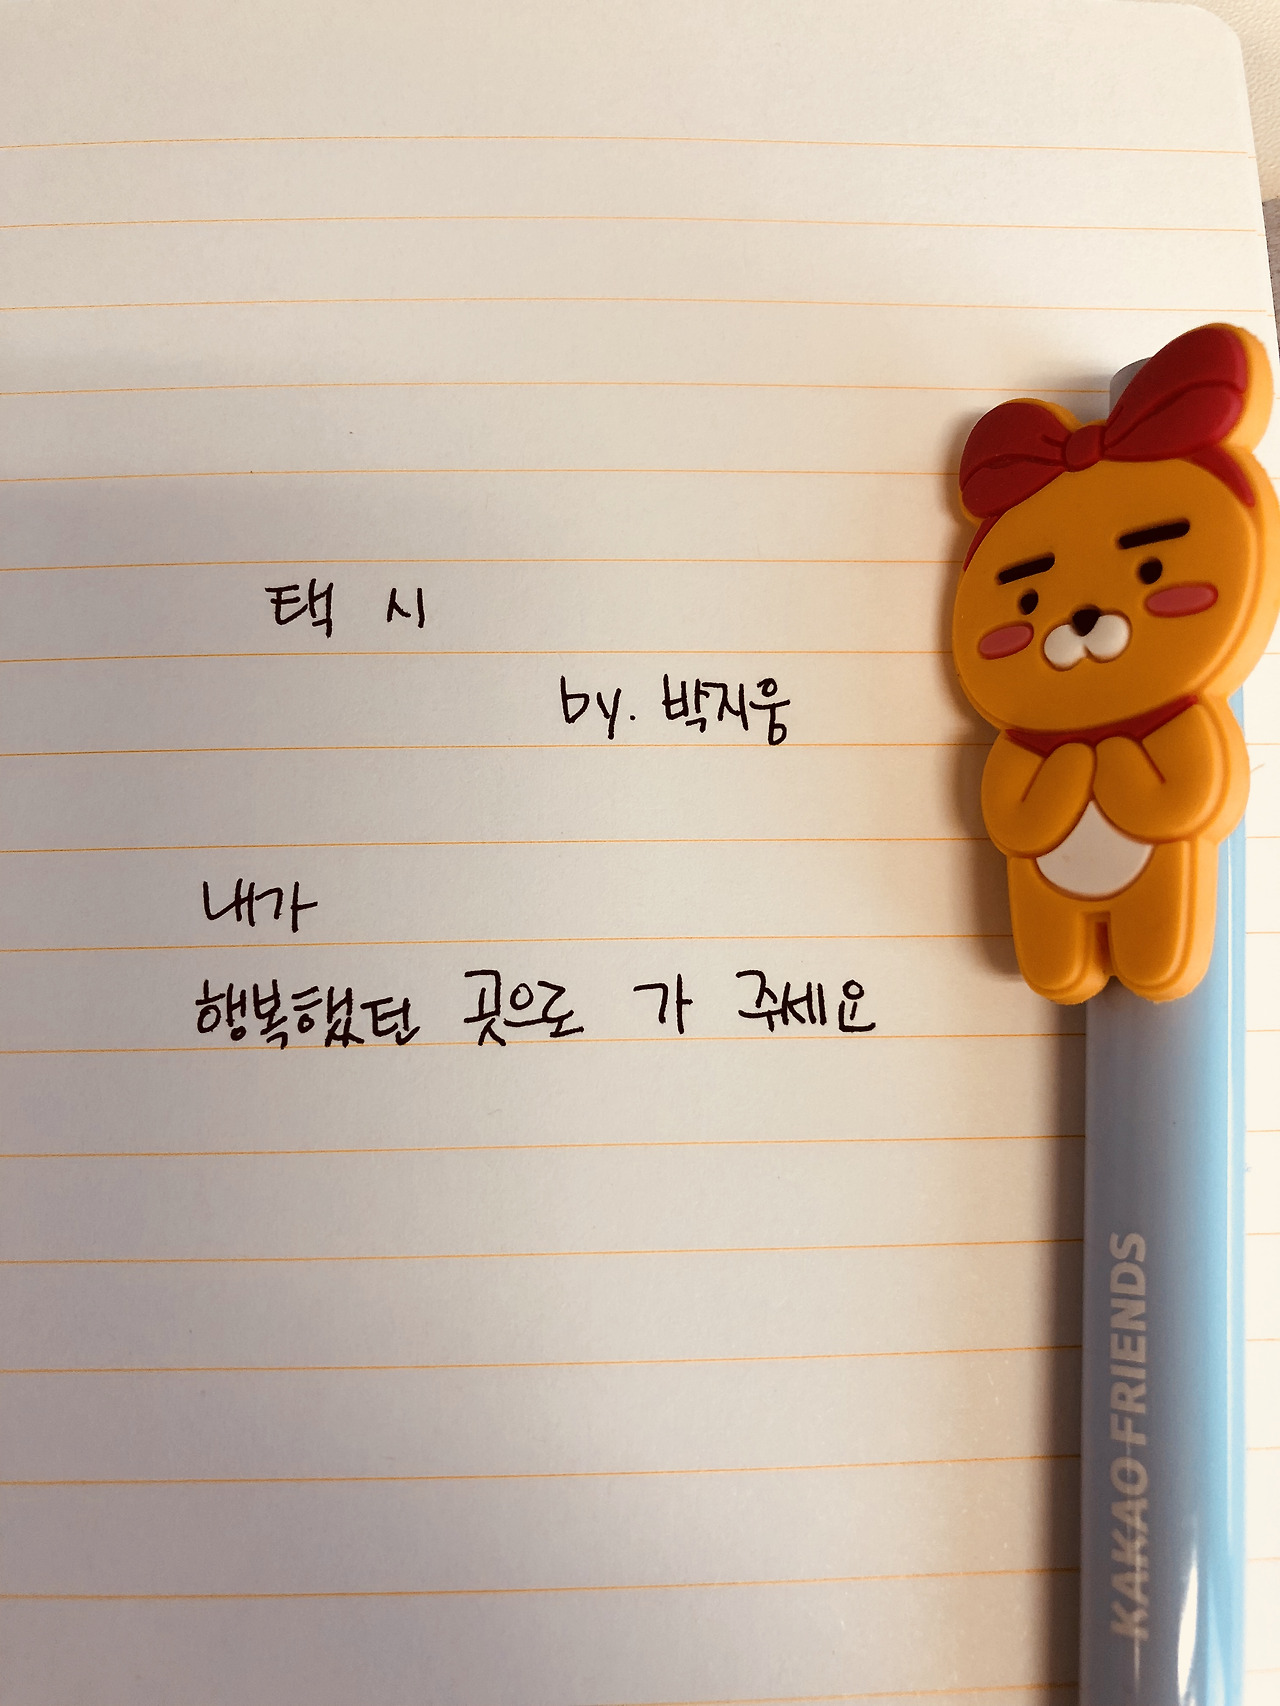 택 시
by. 박지웅
내가
행복했던 곳으로 가 주세요
KAKAO FRIENDS